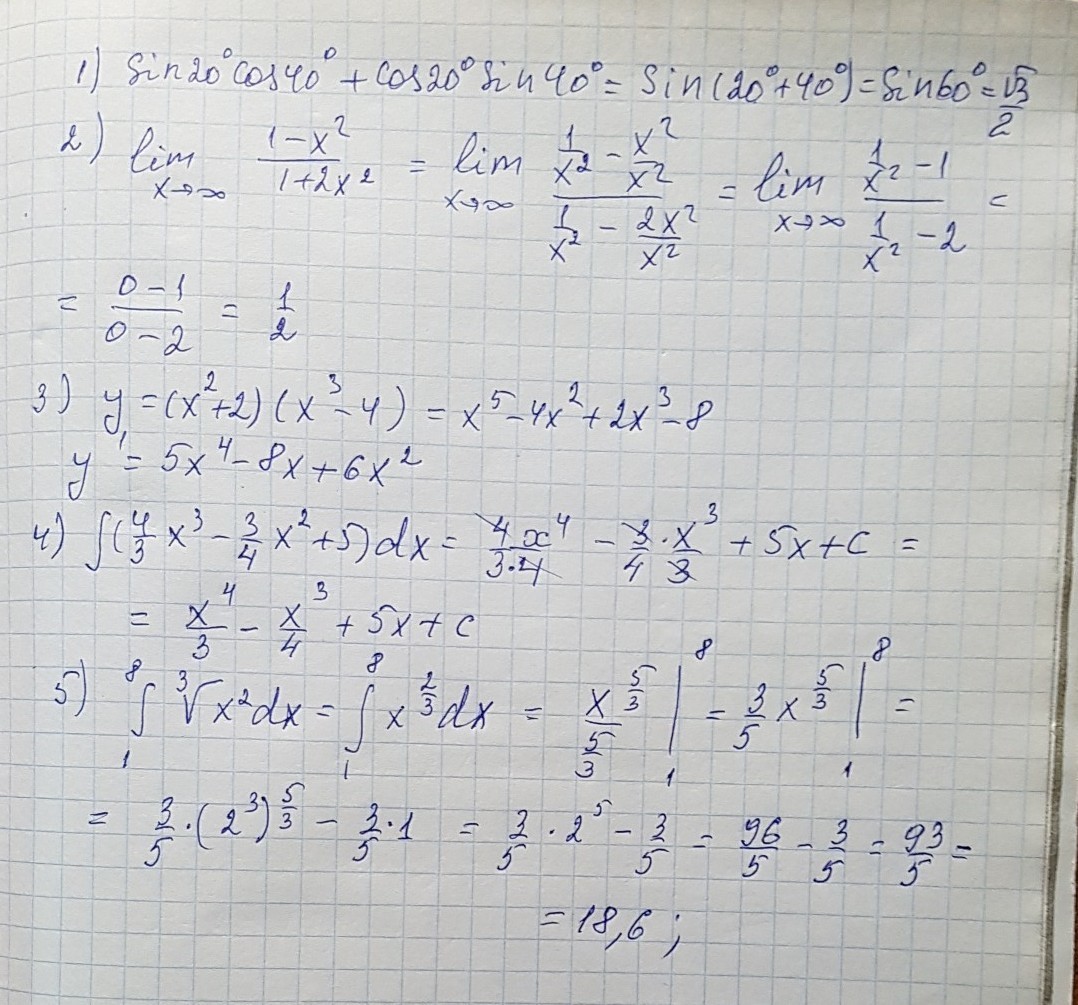 1) Sin20°cos40° + cos20°Sin40° = Sin(20°+40°) = Sin60° = √3/2
2) lim x→∞ (1-x²)/(1+2x²) = lim x→∞ (1/x² - x²/x²)/(1/x² - 2x²/x²) = lim x→∞ (1/x² - 1)/(1/x² - 2) =
= (0-1)/(0-2) = 1/2
3) y = (x²+2)(x³-4) = x⁵-4x²+2x³-8
y' = 5x⁴-8x+6x²
4) ∫(4/3 x³ - 3/4 x² + 5)dx = 4x⁴/(3·4) - 3/4 · x³/3 + 5x + c =
= x⁴/3 - x³/4 + 5x + c
5) ∫₁⁸ ³√x² dx = ∫₁⁸ x^(2/3) dx = x^(5/3)/(5/3) |₁⁸ = 3/5 x^(5/3) |₁⁸ =
= 3/5 · (2³)^(5/3) - 3/5 · 1 = 3/5 · 2⁵ - 3/5 = 96/5 - 3/5 = 93/5 =
= 18,6;